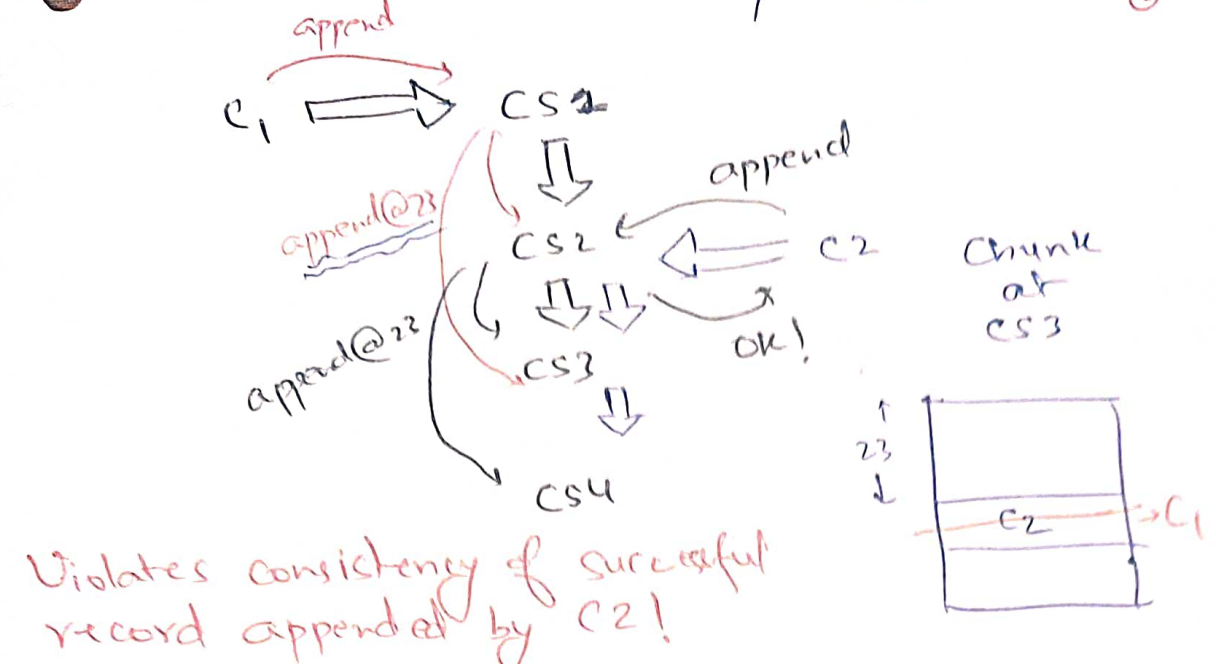 append
C1
CS1
append
append@23
CS2
C2
Chunk
at
CS3
append@23
OK!
CS3
23
C2
C1
CS4
Violates consistency of successful
record appended by C2!